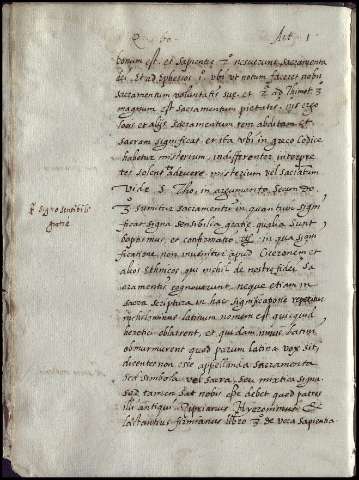 Q. 60. Art. 1
bonum est. et sapientie 2º nescierunt sacramenta
dei. Et ad Ephesios 1. ubi ut notum faceret nobis
sacramentum voluntatis sue. et 1ª ad Thimot 3
magnum est sacramentum pietatis. his ergo
locis et alijs, sacramentum rem abditam et
sacram significat. et ita ubi in greco codice
habetur misterium, indifferenter interpre
tes solent advertere misterium vel sacramentum
Vide S. Tho. in argumento. Secundo
sumitur sacramentum in quantum signi
ficat signa sensibilia gratie. qualia sunt
baptismus, et confirmatio in qua signi
ficatione non invenitur apud Ciceronem et
alios Ethnicos, qui nichil de nostre fidei sa
cramentis cognoverunt. neque etiam in
sacra scriptura in hac significatione reperitur
nichilominus latinum nomen est quicquid
heretici oblatrent, et quidam nimis latini
obmurmurent quod parum latina vox sit,
dicentes non esse appellanda sacramenta
sed simbola vel sacra, seu mistica signa
sed tamen sat nobis esse debet quod patres
illi antiqui Ciprianus Hyeronimus, Et
lactantius firmianus libro 3º de vera sapientia
signo sensibili
gratie